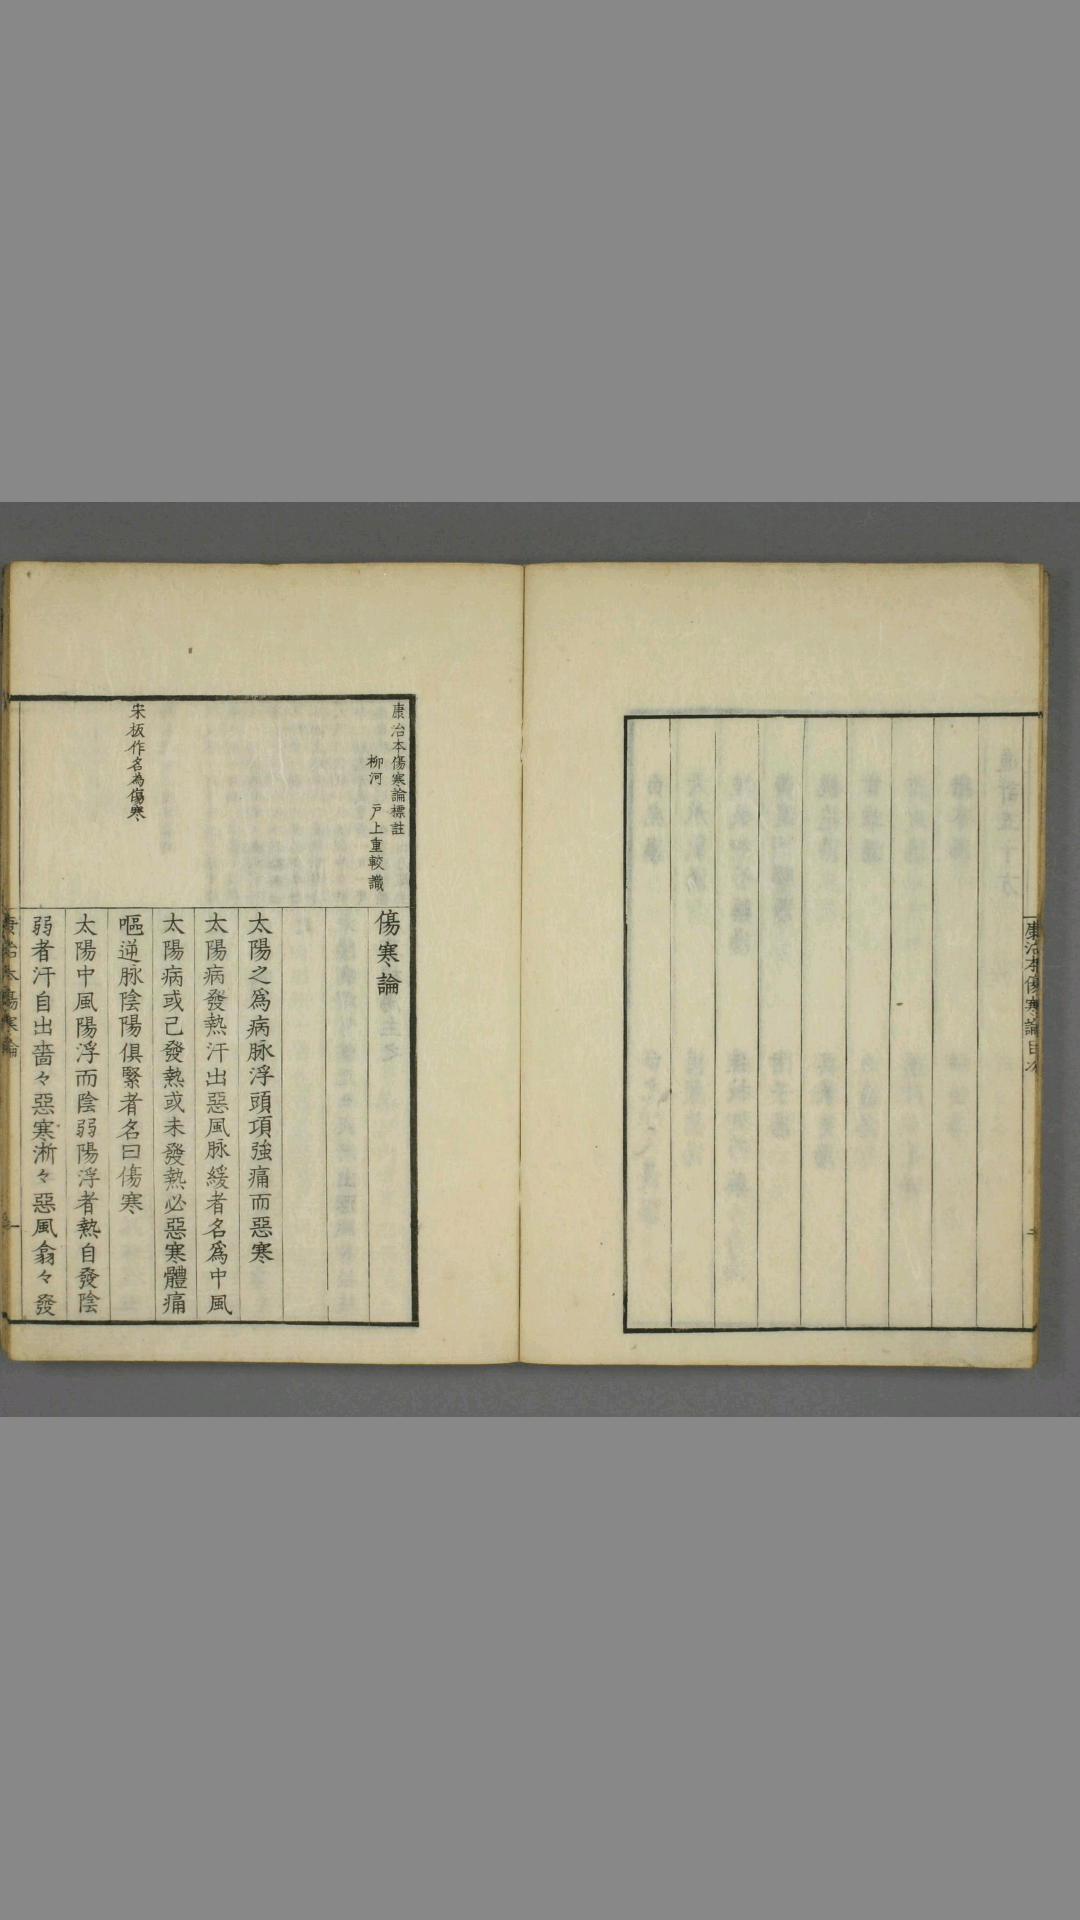 康治本傷寒論目次
康治本傷寒論標註
柳河 戸上重較識
宋板作名為傷寒
傷寒論
太陽之爲病脉浮頭項強痛而惡寒
太陽病發熱汗出惡風脉緩者名爲中風
太陽病或已發熱或未發熱必惡寒體痛
嘔逆脉陰陽俱緊者名曰傷寒
太陽中風陽浮而陰弱陽浮者熱自發陰
弱者汗自出嗇々惡寒淅々惡風翕々發
康治本傷寒論